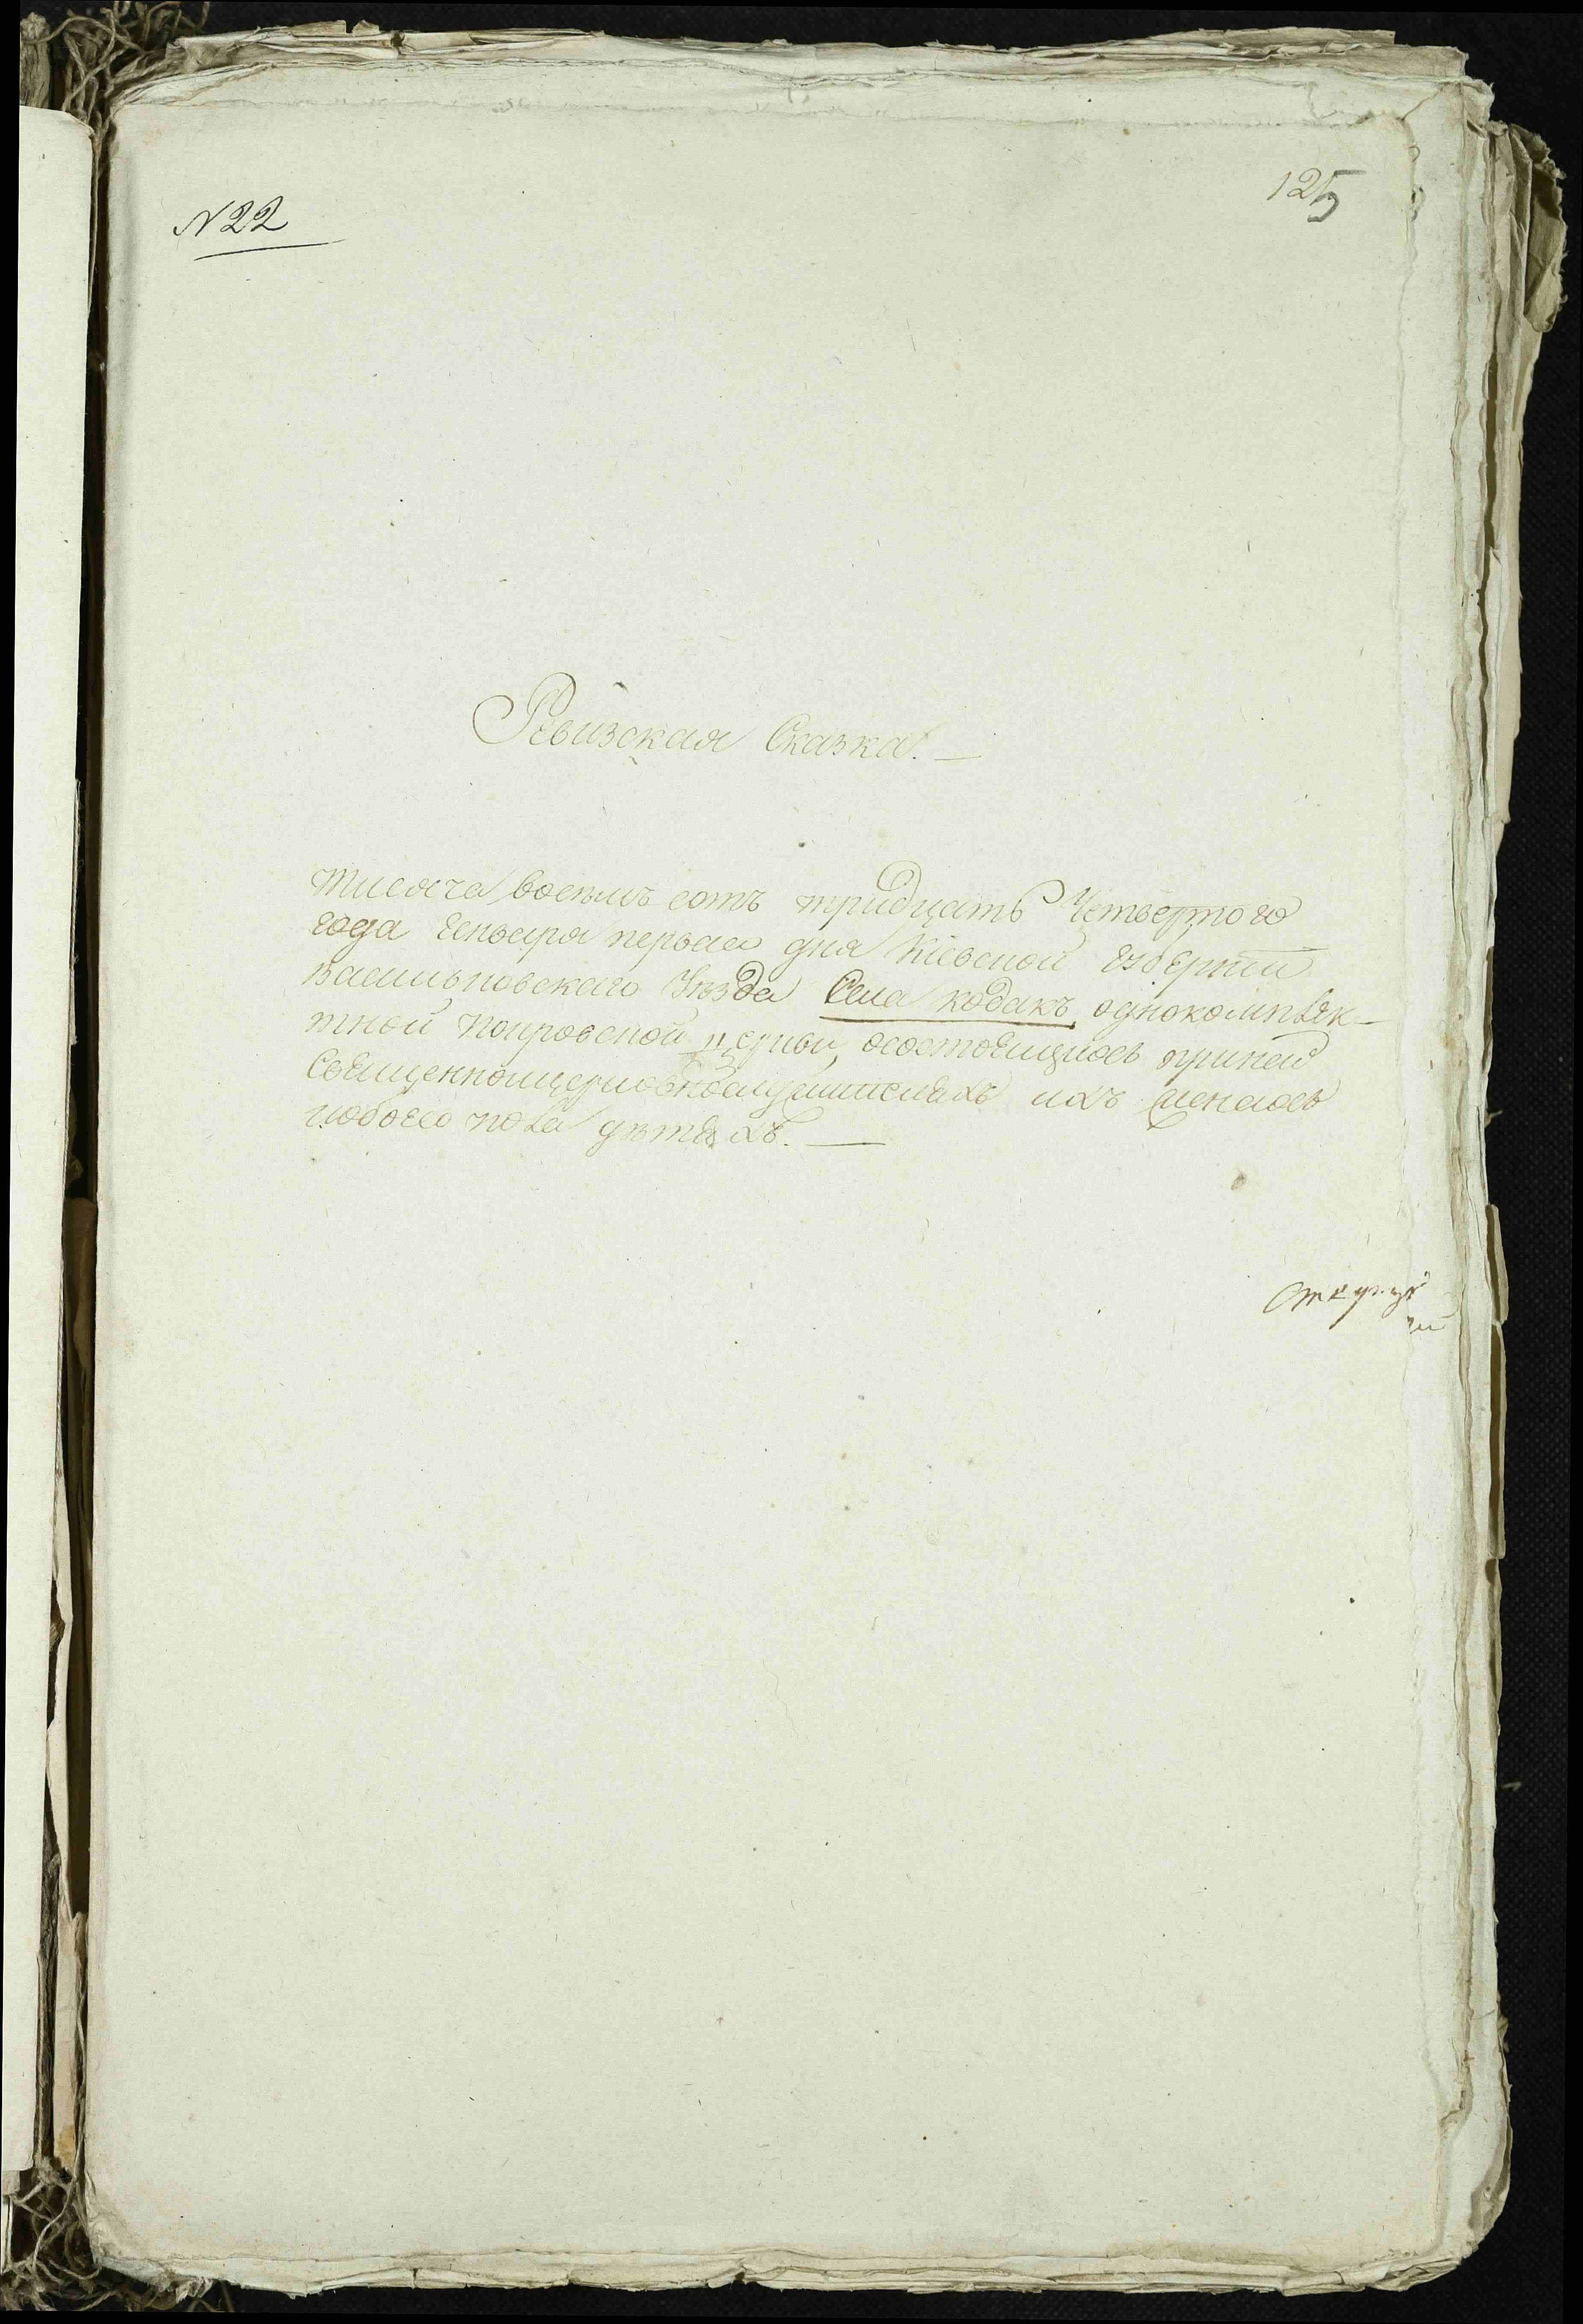 N 22
125
Ревизская Сказка. —
тисяча восемь сотъ тридцать Четвертого
года Генваря первая дня Кіевской Губерніи
Васильковскаго Уѣзда Села Кодакъ однокомплек-
тной Покровской церкви, осостоящихъ приней
Священноцерковнослужителяхъ ихъ женахъ
иобоего пола дѣтяхъ. —